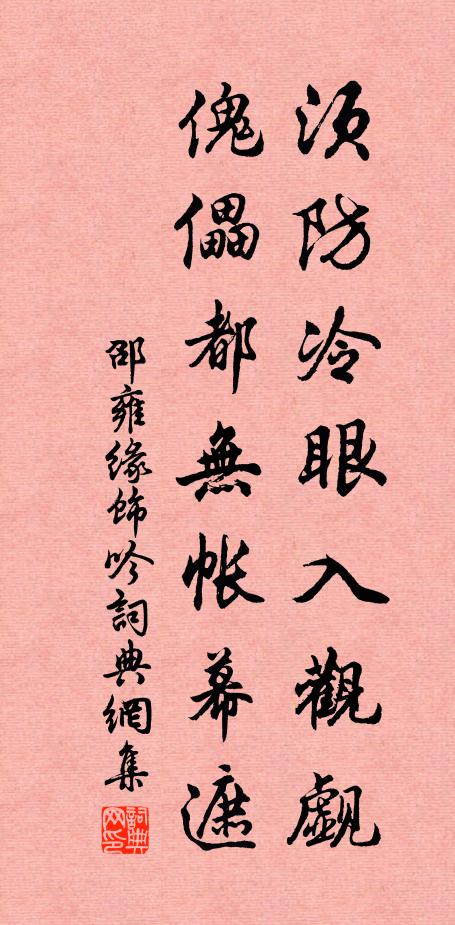 須防冷眼入觀覷
傀儡都無帳幕遮
邵雍緣飾吟詞典網集
詞典网印